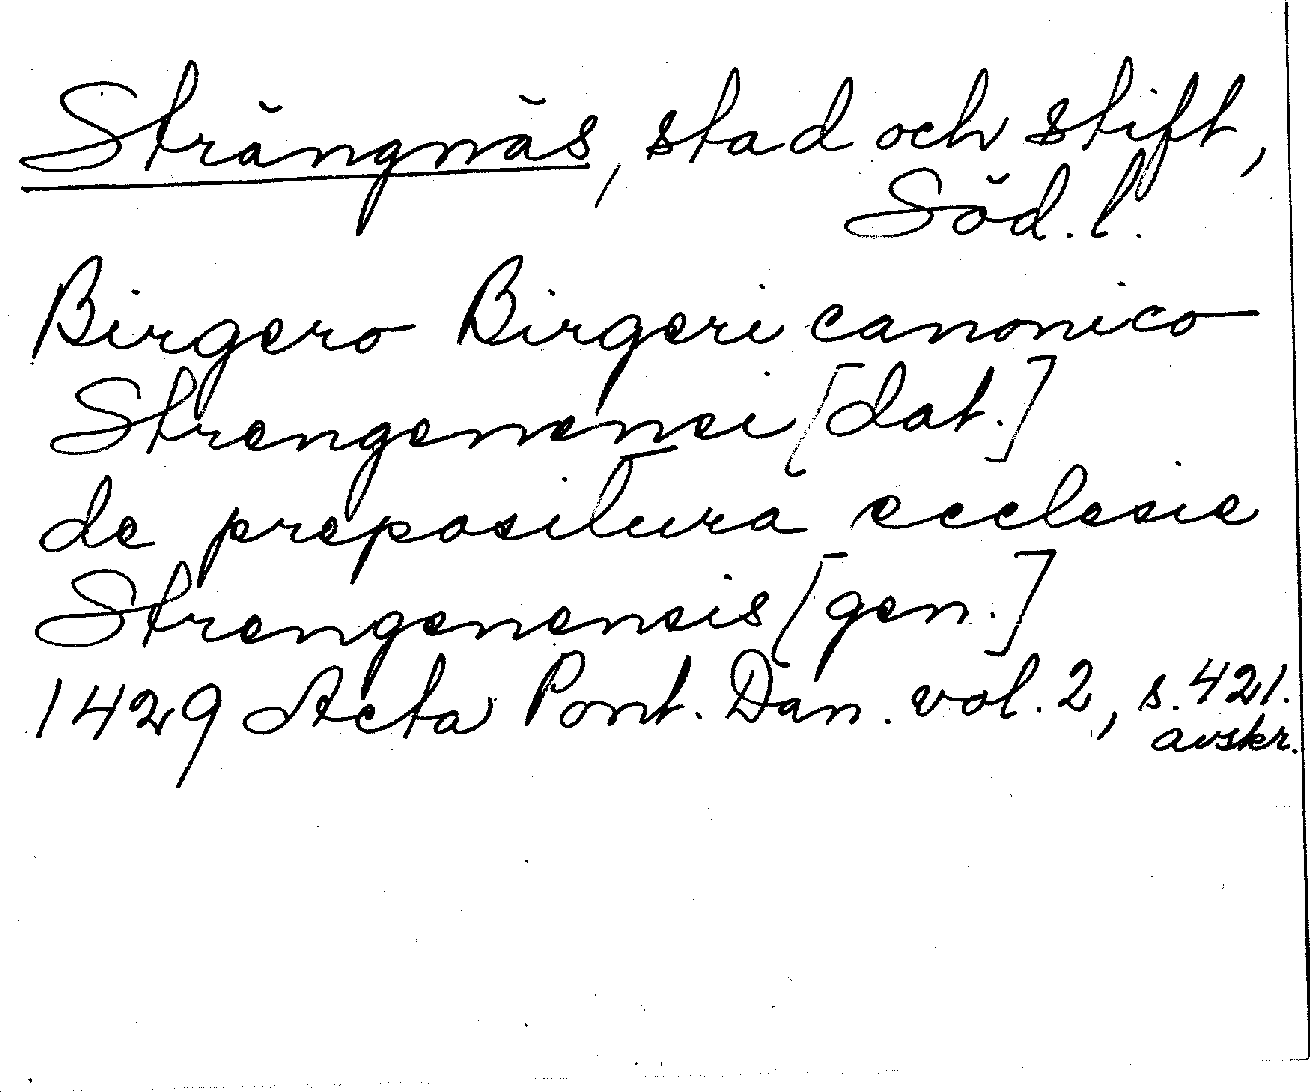 Strängnäs, stad och stift,
Söd.l.
Birgero Birgeri canonico
Strengenensi [dat.]
de prepositura ecclesie
Strengenensis [gen.]
1429 Acta Pont. Dan. vol. 2, s. 421.
avskr.